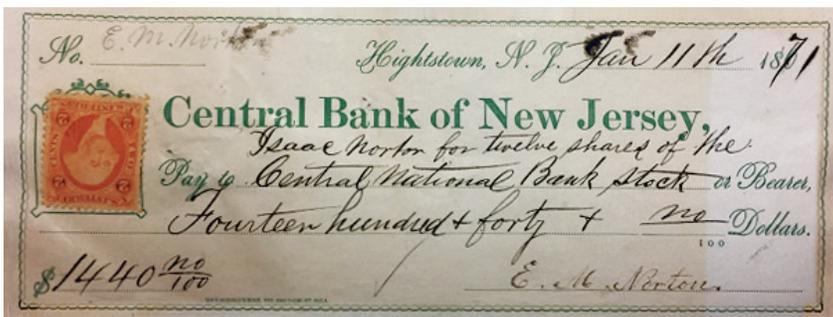 No. E. M. Norton
Hightstown, N. J. Jan 11th 1871
Central Bank of New Jersey,
Isaac Norton for twelve shares of the
Pay to Central National Bank stock or Bearer,
Fourteen hundred & forty & no/100 Dollars.
$1440 no/100
E. M. Norton
TWO
CENTS
2
2
2
2